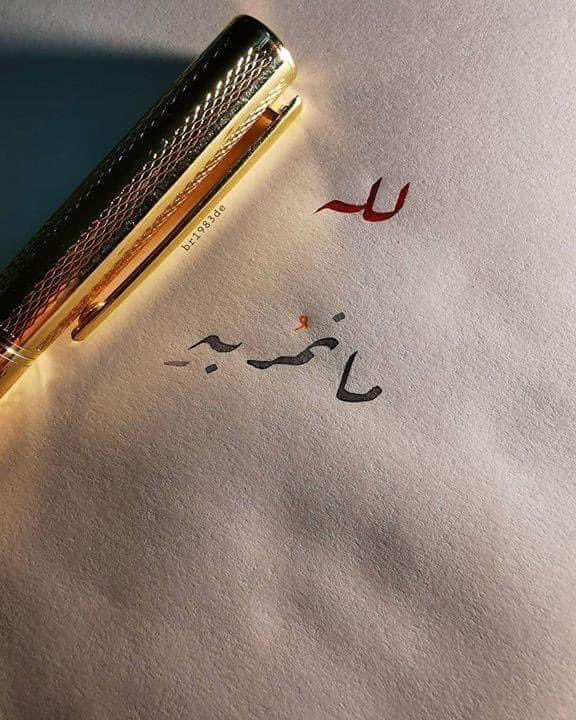 لله
ما نمُر بهِ
br1983de